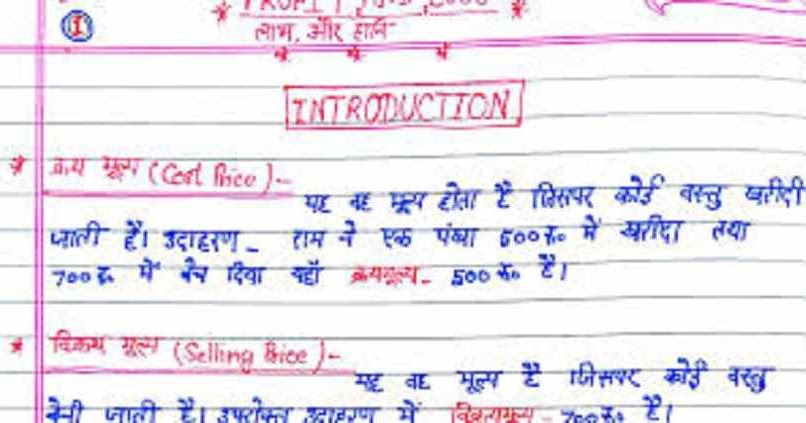 ①
PROFIT AND LOSS
लाभ और हानि
INTRODUCTION
* क्रय मूल्य (Cost Price) :-
यह वह मूल्य होता है जिसपर कोई वस्तु खरीदी
जाती है। उदाहरण - राम ने एक पंखा 500 रू० में खरीदा तथा
700 रू० में बेच दिया यहाँ क्रयमूल्य - 500 रू० है।
* विक्रय मूल्य (Selling Price) :-
यह वह मूल्य है जिसपर कोई वस्तु
बेची जाती है। उपरोक्त उदाहरण में विक्रयमूल्य - 700 रू० है।